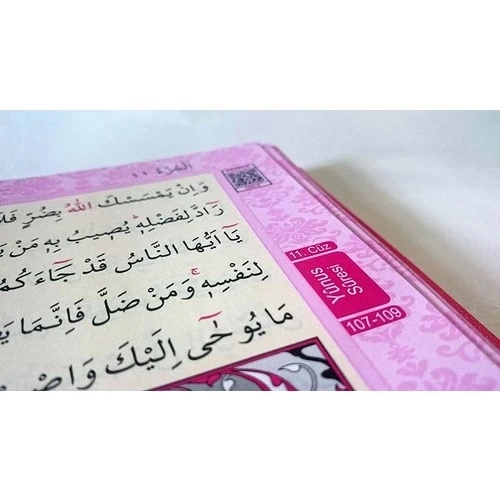 الجزء ١١
وَاِنْ يَمْسَسْكَ اللّٰهُ بِضُرٍّ فَلَا
رَٓادَّ لِفَضْلِه۪ۜ يُص۪يبُ بِه۪ مَنْ
يَٓا اَيُّهَا النَّاسُ قَدْ جَٓاءَكُمُ
لِنَفْسِه۪ۚ وَمَنْ ضَلَّ فَاِنَّمَا
مَا يُوحٰٓى اِلَيْكَ
11. Cüz
Yûnus
Sûresi
107-109